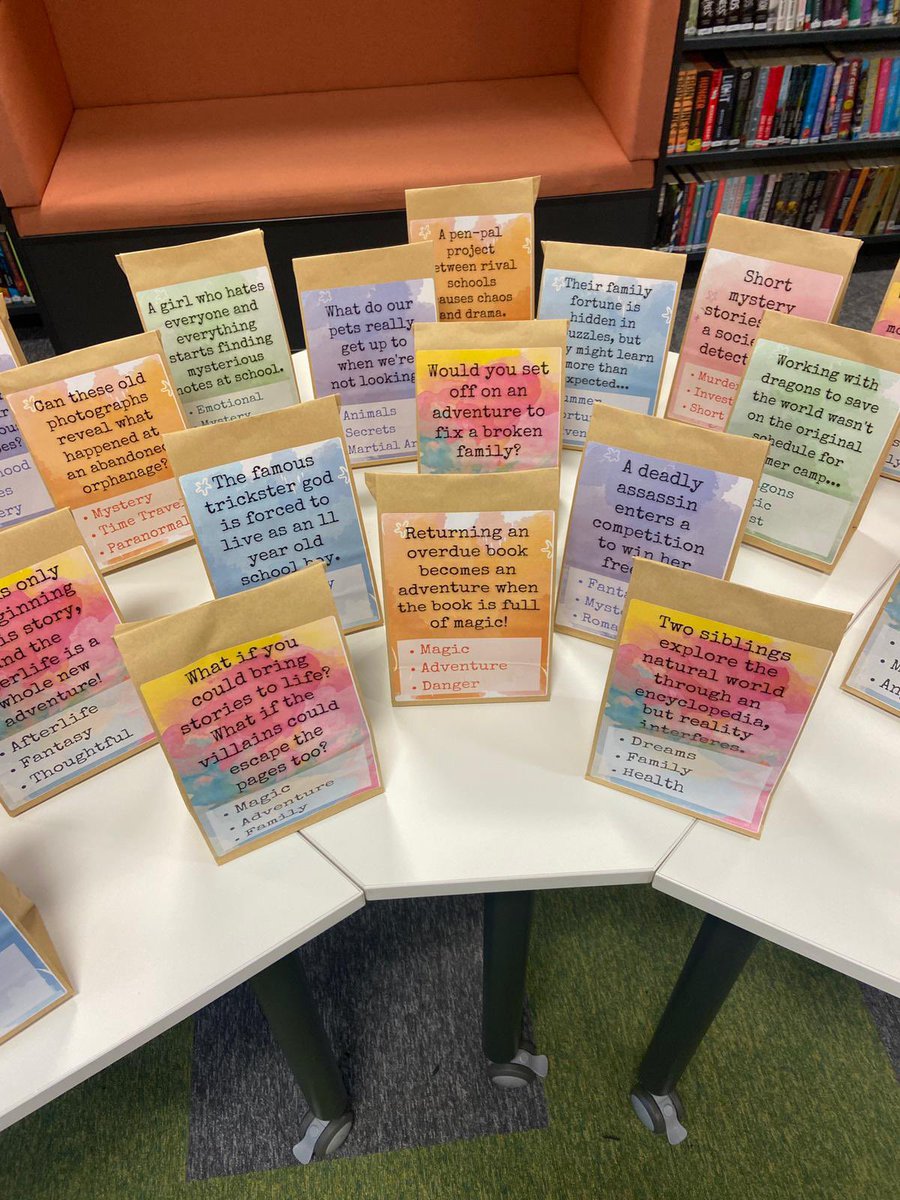 A pen-pal
project
between rival
schools
causes chaos
and drama.
A girl who hates
everyone and
everything
starts finding
mysterious
notes at school.
• Emotional
• Mystery
What do our
pets really
get up to
when we're
not looking
Animals
Secrets
Martial
Their family
fortune is
hidden in
puzzles, but
might learn
more than
expected...
Short
mystery
stories
a
• Murder
• Invest
• Short
Can these old
photographs
reveal what
happened at
an abandoned
orphanage?
• Mystery
• Time Travel
• Paranormal
Would you set
off on an
adventure to
fix a broken
family?
Working with
dragons to save
the world wasn't
on the original
schedule for
camp...
The famous
trickster god
is forced to
live as an 11
year old
school boy.
A deadly
assassin
enters a
competition
to win her
Returning an
overdue book
becomes an
adventure when
the book is full
of magic!
• Magic
• Adventure
• Danger
only
story,
and the
afterlife is a
whole new
adventure!
• Afterlife
• Fantasy
• Thoughtful
What if you
could bring
stories to life?
What if the
villains could
escape the
pages too?
• Magic
• Adventure
• Family
Two siblings
explore the
natural world
through an
encyclopedia,
but reality
interferes.
• Dreams
• Family
• Health